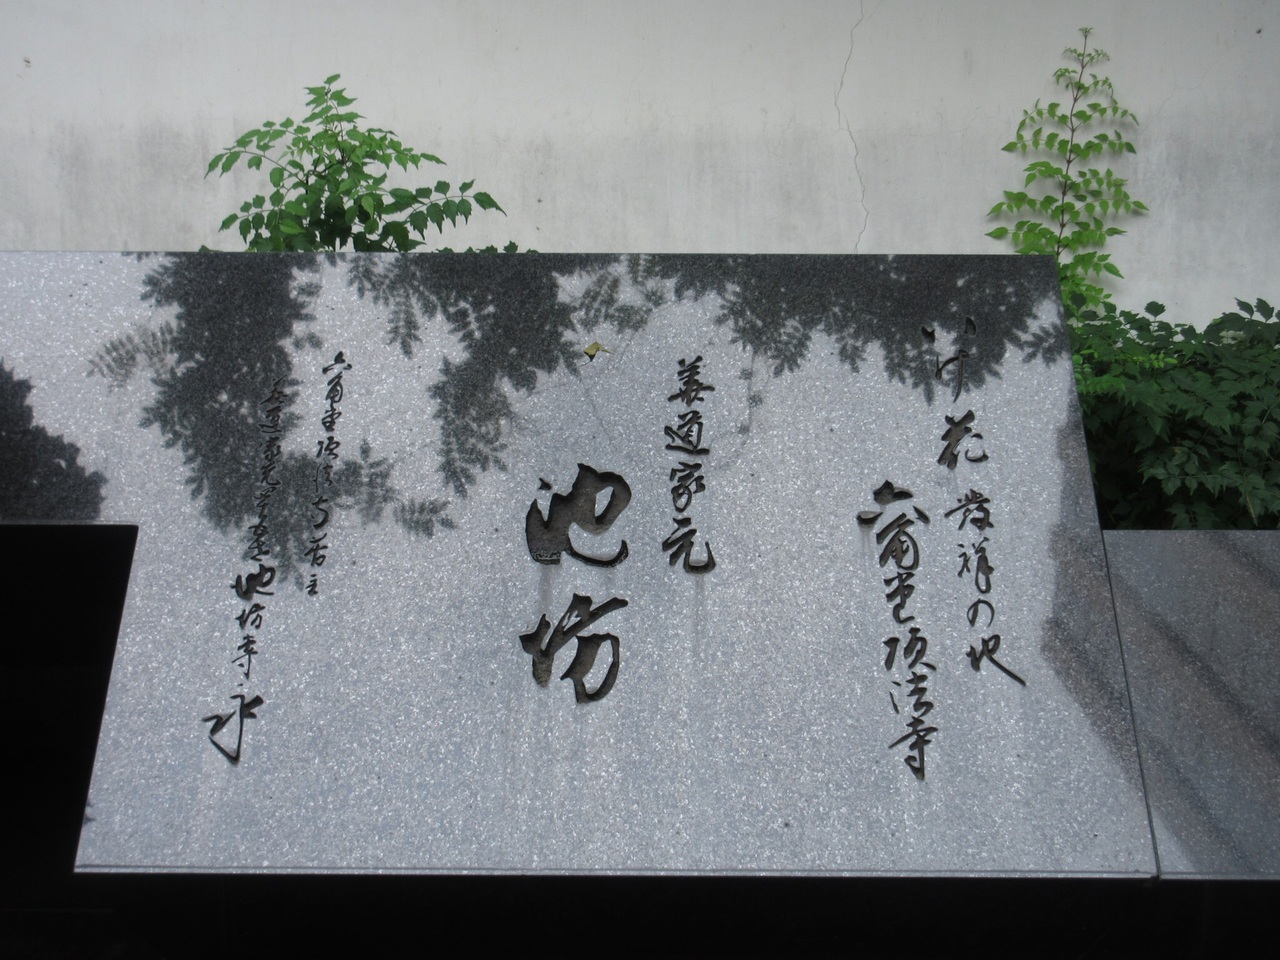 いけ花発祥の地
六角堂頂法寺
華道家元
池坊
六角堂頂法寺住職
華道家元四十五世池坊専永